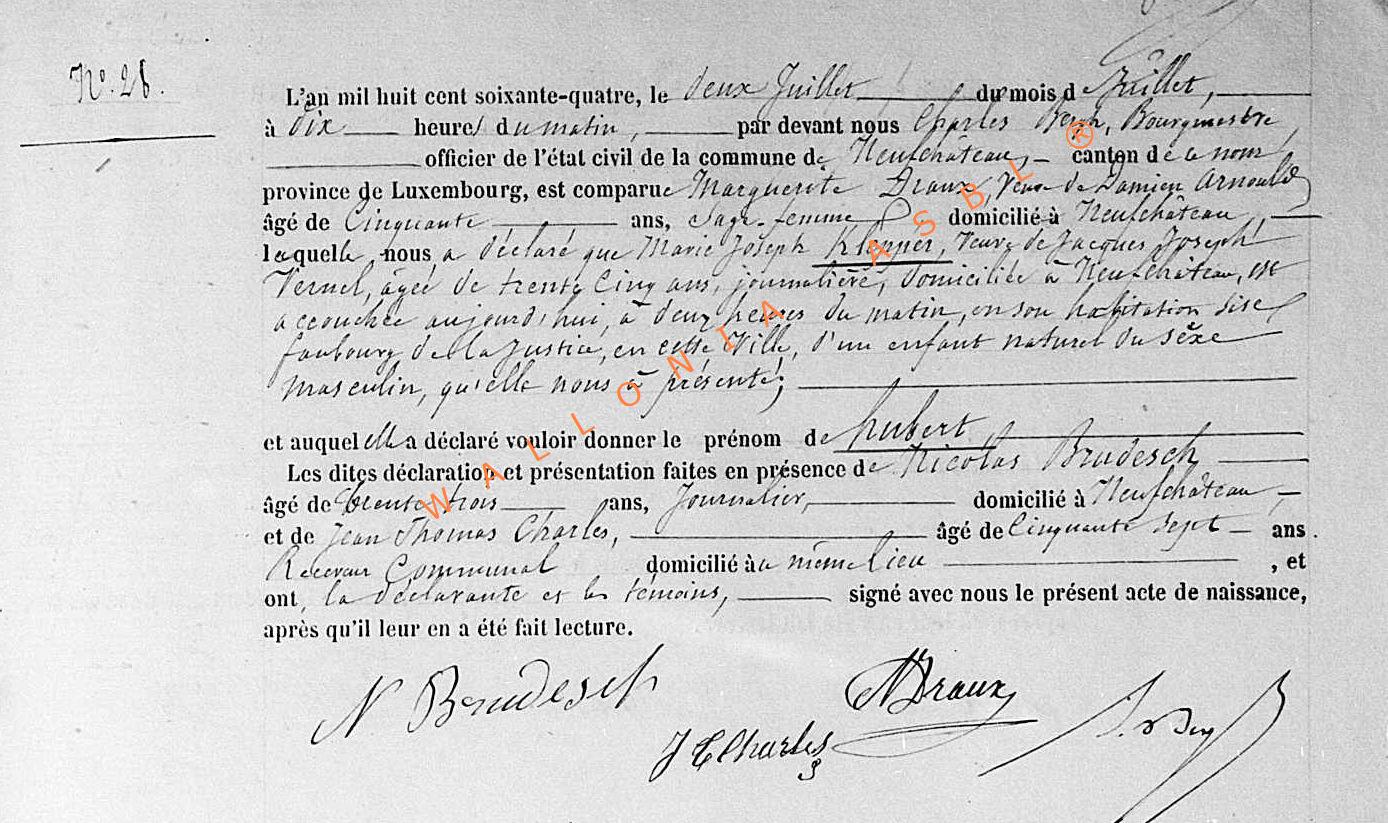 N.° 28.
L'an mil huit cent soixante-quatre, le deux Juillet du mois de Juillet,
à dix heures du matin, par devant nous Charles Besch, Bourgmestre,
officier de l'état civil de la commune de Neufchâteau, canton de ce nom,
province de Luxembourg, est comparue Marguerite Draux, Veuve de Damien Arnould
âgé de Cinquante ans, Sage-femme domicilié à Neufchâteau,
laquelle nous a déclaré que Marie Joseph Klepper, Veuve de Jacques Joseph
Vernel, agée de trente Cinq ans, journalière, domiciliée à Neufchâteau, est
accouchée aujourd'hui, à deux heures du matin, en son habitation sise
faubourg de la Justice, en cette Ville, d'un enfant naturel du sèxe
masculin, qu'elle nous à présenté;
et auquel elle a déclaré vouloir donner le prénom de hubert,
Les dites déclaration et présentation faites en présence de Nicolas Brudesch
âgé de trente trois ans, Journalier, domicilié à Neufchâteau,
et de Jean Thomas Charles, âgé de Cinquante Sept ans.
Receveur Communal domicilié à a même lieu , et
ont, la déclarante et les témoins, signé avec nous le présent acte de naissance,
après qu'il leur en a été fait lecture.
N Brudesch
MDraux
J T Charles
WALLONIA ASBL ®